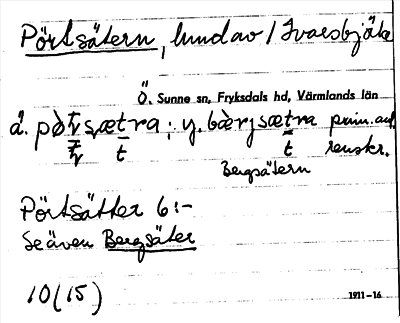 Pörtsätern, lund av / Ivarsbjörke
Ö. Sunne sn, Fryksdals hd, Värmlands län
å. pòtsætra; y. bærjsætra prim. auf.
t t renskr.
Bergsätern
Pörtsätter 6:-
Se även Bergsäter
10(15)
1911-16